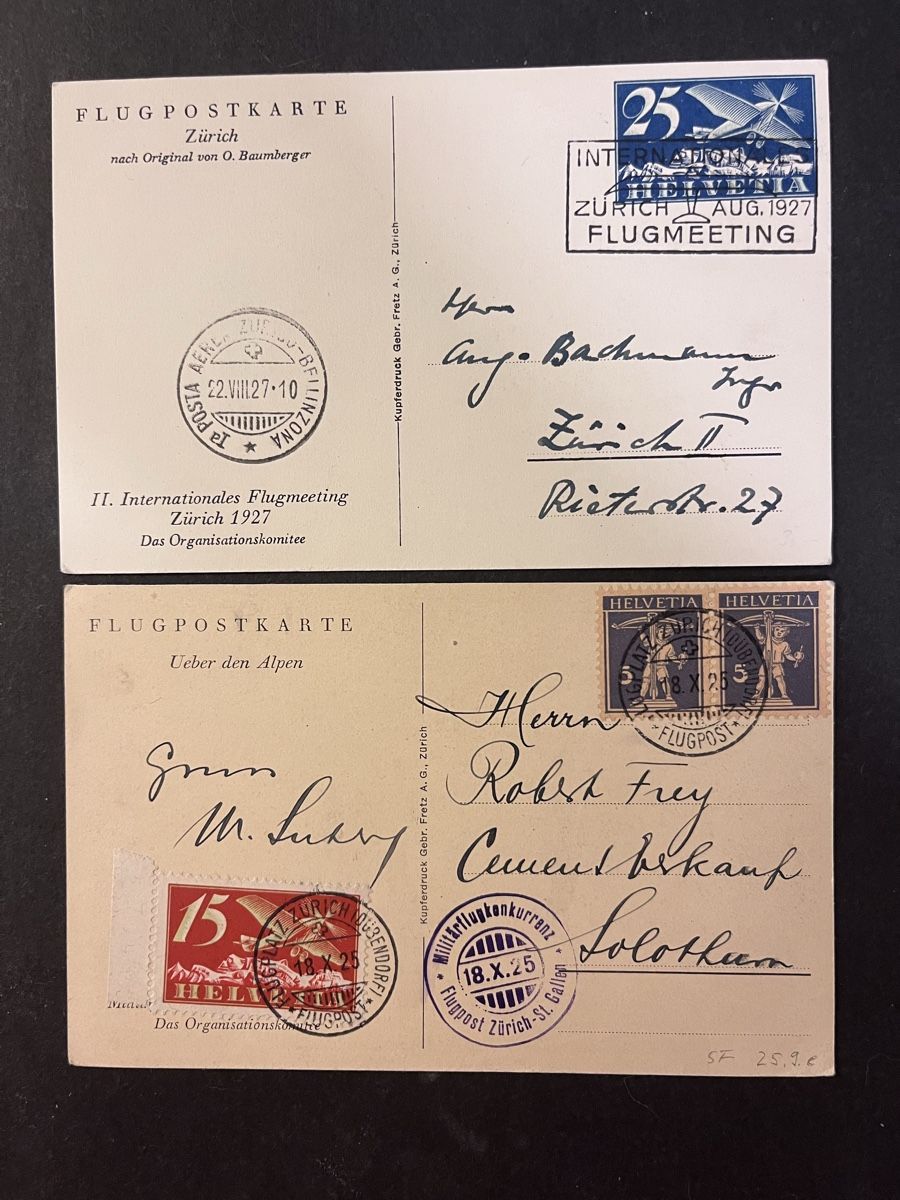 FLUGPOSTKARTE
Zürich
nach Original von O. Baumberger
25
HELVETIA
INTERNATIONALES
ZÜRICH AUG. 1927
FLUGMEETING
Kupferdruck Gebr. Fretz A. G., Zürich
Ia POSTA AEREA ZURIGO-BELLINZONA
22.VIII.27·10
Herrn
Aug. Bachmann
Zürich II
Rieterstr. 27
II. Internationales Flugmeeting
Zürich 1927
Das Organisationskomitee
FLUGPOSTKARTE
Ueber den Alpen
HELVETIA
5
HELVETIA
5
FLUGPLATZ ZÜRICH (DÜBENDORF)
18.X.25
*FLUGPOST*
Kupferdruck Gebr. Fretz A. G., Zürich
Herrn
Robert Frey
Cement Verkauf
Solothurn
Gruss
15
HELVETIA
FLUGPLATZ ZÜRICH (DÜBENDORF)
18.X.25
*FLUGPOST*
Das Organisationskomitee
* Militärflugkonkurrenz *
18.X.25
Flugpost Zürich-St. Gallen
SF 25,9.e